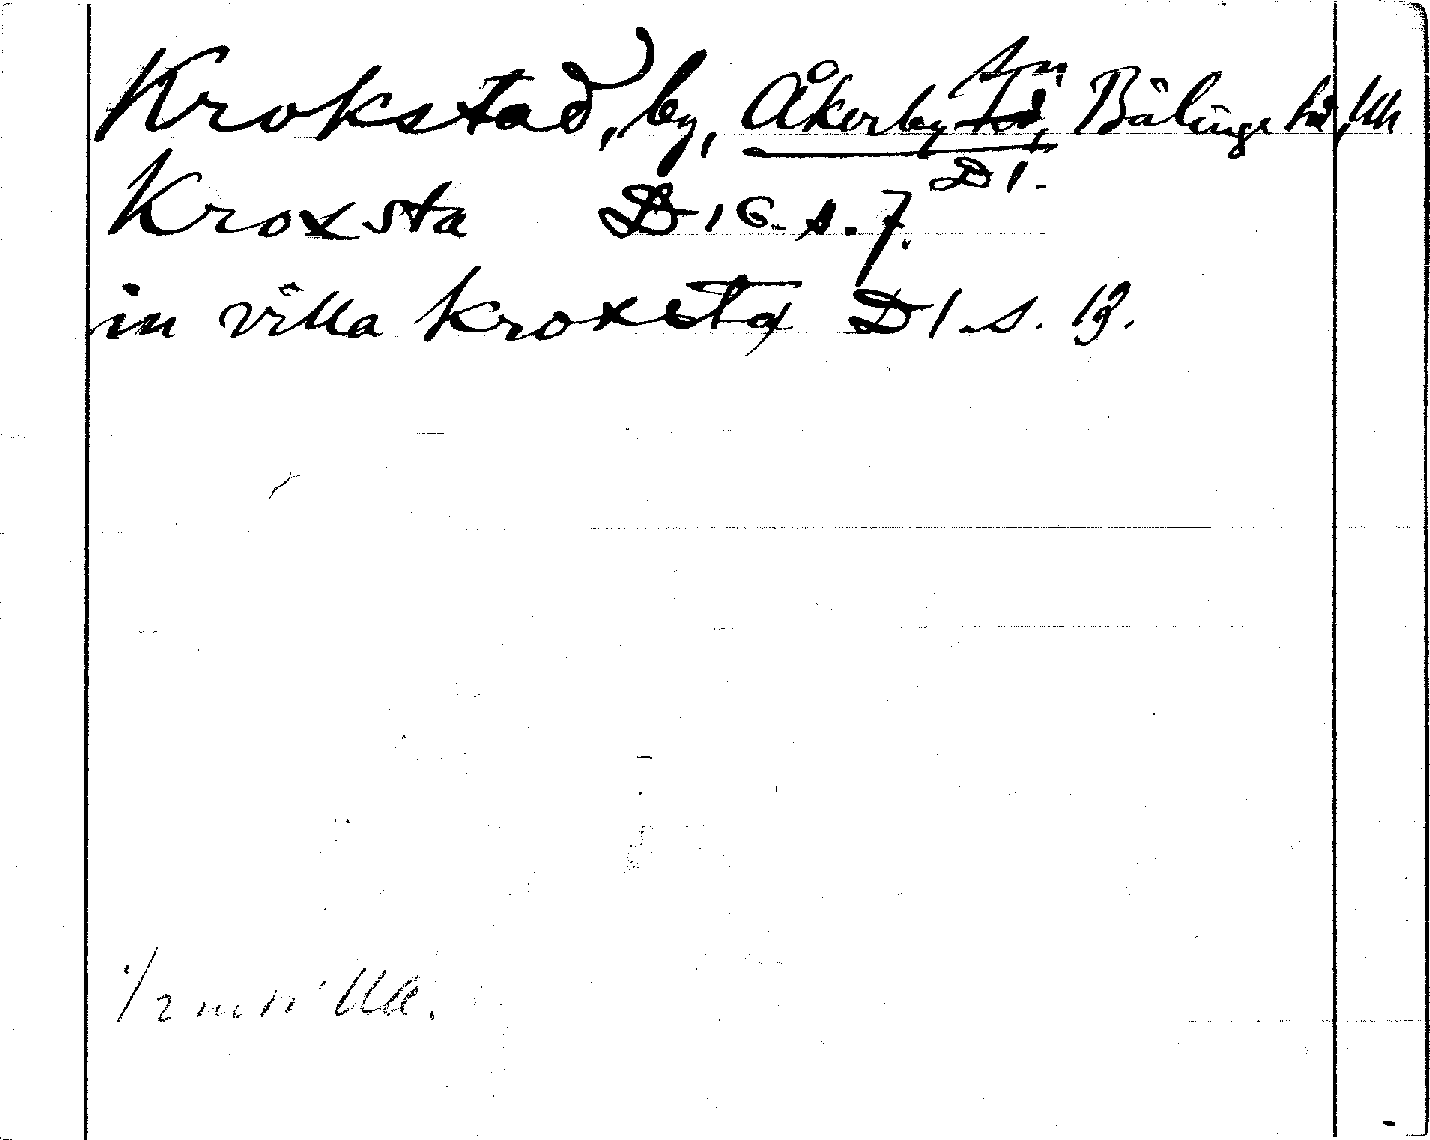 Krokstad, by, Åkerby sn, Bälinge hd, Uh
D 1.
Kroxsta D 1 s. 7.
in villa kroxsta D 1. s. 13.
1/2 m